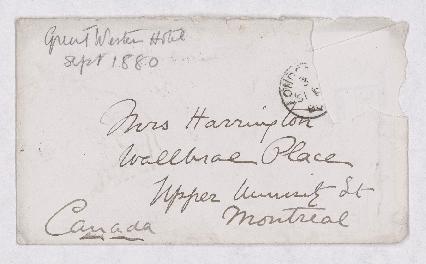 Great Western Hotel
Sept 1880
LONDON
Mrs Harrington
Wallbrae Place
Upper University St
Montreal
Canada